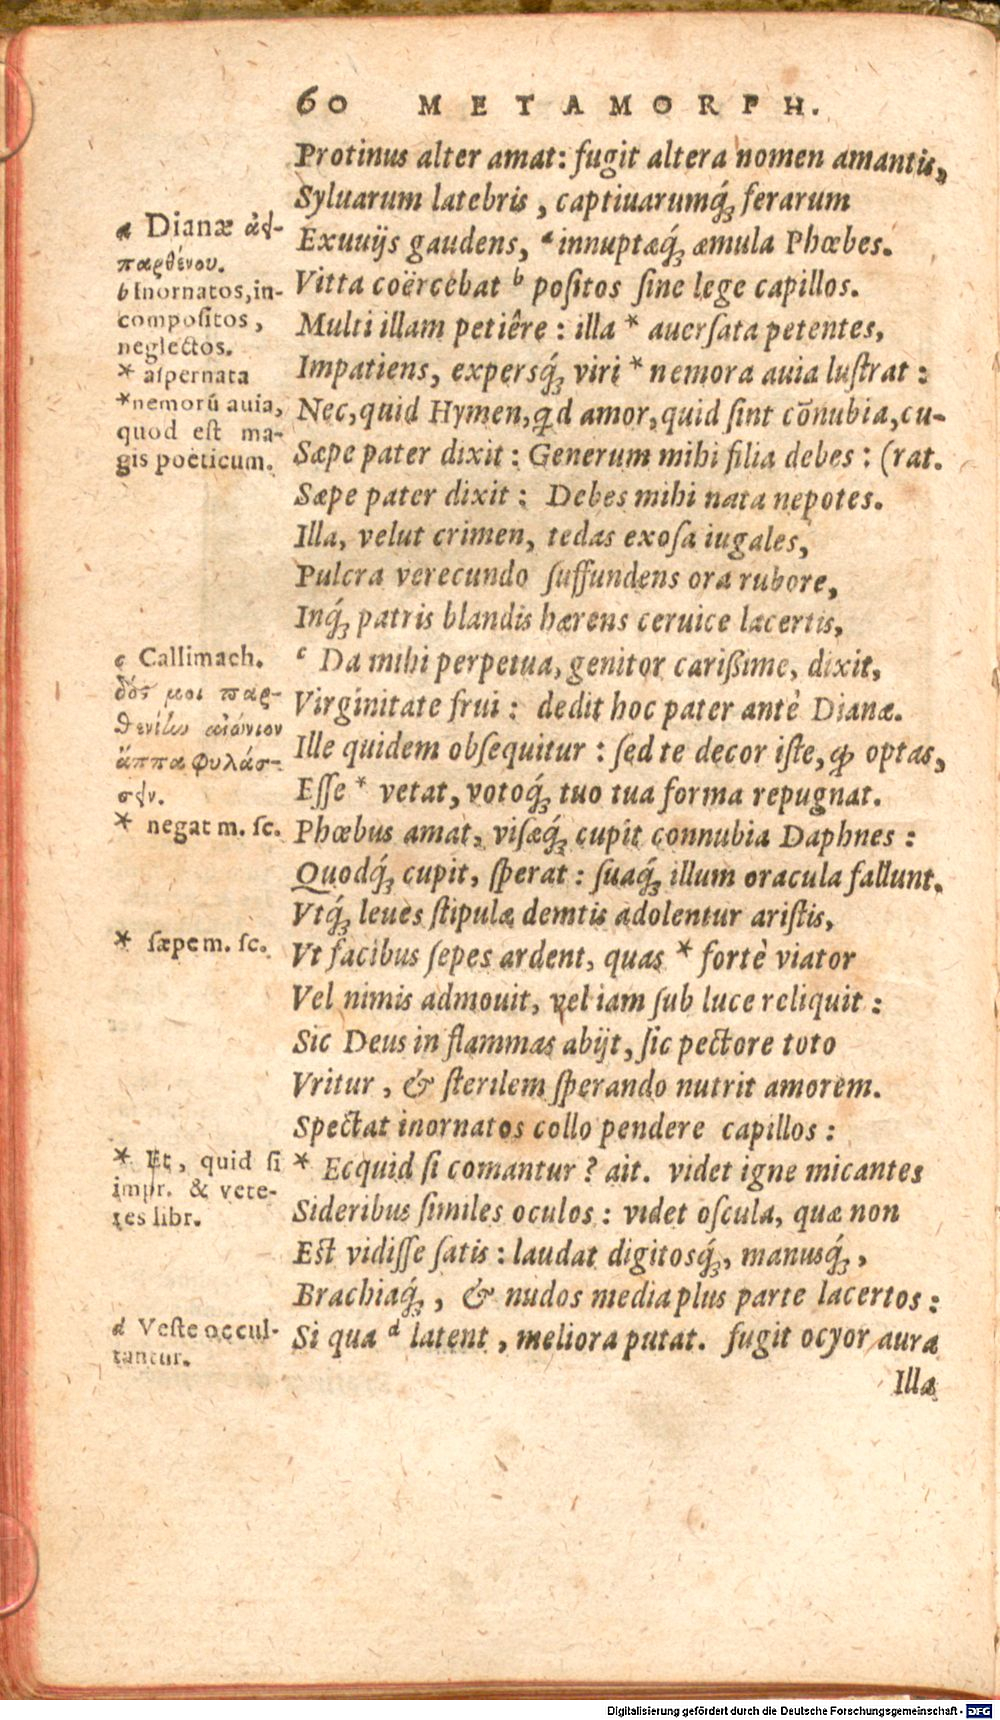 60 METAMORPH.
Protinus alter amat: fugit altera nomen amantis,
Syluarum latebris, captiuarumq́; ferarum
Exuuijs gaudens, ᵃ innuptæq́; æmula Phœbes.
Vitta coërcebat ᵇ positos sine lege capillos.
Multi illam petiêre: illa * auersata petentes,
Impatiens, expersq́; viri * nemora auia lustrat:
Nec, quid Hymen, qd amor, quid sint cōnubia, cu-
Sæpe pater dixit: Generum mihi filia debes: (rat.
Sæpe pater dixit: Debes mihi nata nepotes.
Illa, velut crimen, tedas exosa iugales,
Pulcra verecundo suffundens ora rubore,
Inq́; patris blandis hærens ceruice lacertis,
ᶜ Da mihi perpetua, genitor carißime, dixit,
Virginitate frui: dedit hoc pater antè Dianæ.
Ille quidem obsequitur: sed te decor iste, ꝙ optas,
Esse * vetat, votoq́; tuo tua forma repugnat.
Phœbus amat, visæq́; cupit connubia Daphnes:
Quodq́; cupit, sperat: suaq́; illum oracula fallunt.
Vtq́; leues stipulæ demtis adolentur aristis,
Vt facibus sepes ardent, quas * fortè viator
Vel nimis admouit, vel iam sub luce reliquit:
Sic Deus in flammas abijt, sic pectore toto
Vritur, & sterilem sperando nutrit amorem.
Spectat inornatos collo pendere capillos:
* Ecquid si comantur? ait. videt igne micantes
Sideribus similes oculos: videt oscula, quæ non
Est vidisse satis: laudat digitosq́;, manusq́;,
Brachiaq́;, & nudos media plus parte lacertos:
Si qua ᵈ latent, meliora putat. fugit ocyor aura
Illa
a Dianæ ἀει-
παρθένου.
b Inornatos, in-
compositos,
neglectos.
* aspernata
* nemorū auia,
quod est ma-
gis poëticum.
c Callimach.
δός μοι παρ-
θενίην αἰώνιον
ἄππα φυλάσ-
σειν.
* negat m. sc.
* sæpe m. sc.
* Et, quid si
impr. & vete-
res libr.
d Veste occul-
tantur.
Digitalisierung gefördert durch die Deutsche Forschungsgemeinschaft - DFG